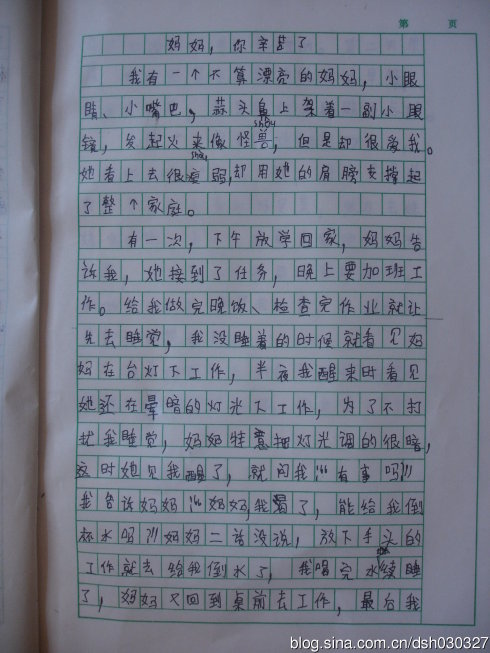 第 页
妈妈，你辛苦了
我有一个不算漂亮的妈妈，小眼
睛、小嘴巴，蒜头鼻上架着一副小眼
镜，发起火来像怪兽，但是却很爱我。
她看上去很瘦弱，却用她的肩膀支撑起
了整个家庭。
有一次，下午放学回家，妈妈告
诉我，她接到了任务，晚上要加班工
作。给我做完晚饭、检查完作业就让
先去睡觉，我没睡着的时候就看见妈
妈在台灯下工作，半夜我醒来时看见
她还在晕暗的灯光下工作，为了不打
扰我睡觉，妈妈特意把灯光调的很暗，
这时她见我醒了，就问我：“有事吗？”
我告诉妈妈：“妈妈，我渴了，能给我倒
杯水吗？”妈妈二话没说，放下手头的
工作就去给我倒水了，我喝完水继续睡
了，妈妈又回到桌前去工作，最后我
blog.sina.com.cn/dsh030327